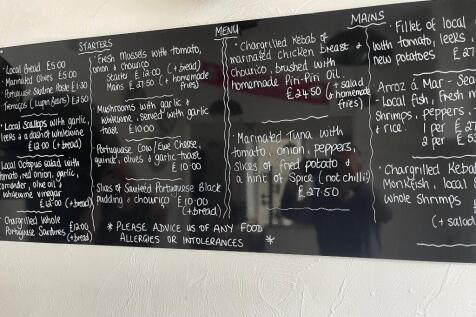 STARTERS
MENU
MAINS
· Local Bread £5.00
· Marinated Olives £5.00
· Portuguese Sardine Paste £1.50
· Tremoços (Lupin Beans) £2.50
· Local Scallops with garlic,
leeks & a dash of white wine
£12.00 (+ bread)
Local Octopus salad with
tomato, red onion, garlic,
coriander, olive oil &
whitewine vinegar
£12.00 (+ bread)
· Chargrilled Whole
Portuguese Sardines £12.00
(+ bread)
· Fresh Mussels with tomato,
onion & chouriço
Starter £12.00 (+ bread)
Mains £21.50 (+ homemade
fries)
Mushrooms with garlic &
white wine, served with garlic
toast £10.00
Portuguese Cow/Ewe Cheese,
quince, olives & garlic toast
£10.00
Slices of Sautéed Portuguese Black
pudding & chouriço £10.00
(+ bread)
* PLEASE ADVICE US OF ANY FOOD
ALLERGIES OR INTOLERANCES *
· Chargrilled Kebab of
marinated chicken breast &
chouriço, brushed with
homemade Piri-Piri Oil.
£24.50 (+ salad
& homemade
fries)
· Marinated Tuna with
tomato, onion, peppers,
slices of fried potato &
a hint of spice (not chilli)
£27.50
· Fillet of local
with tomato, leeks,
new potatoes £27
Arroz á Mar - Sea
Local fish, fresh m
Shrimps, peppers
& rice.
1 per £27
2 per £5
· Chargrilled Kebab
Monkfish, local
whole shrimps
£
(+ salad